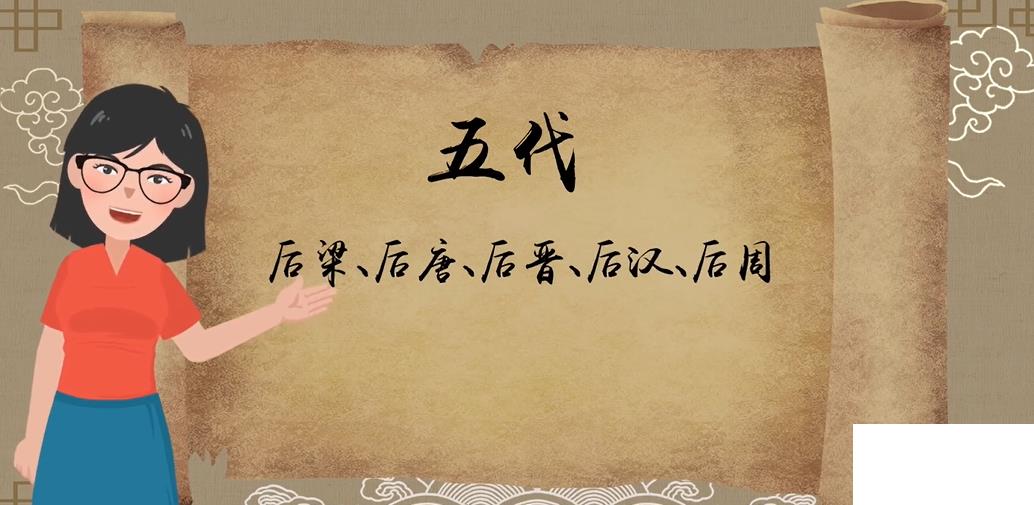 五代
后梁、后唐、后晋、后汉、后周